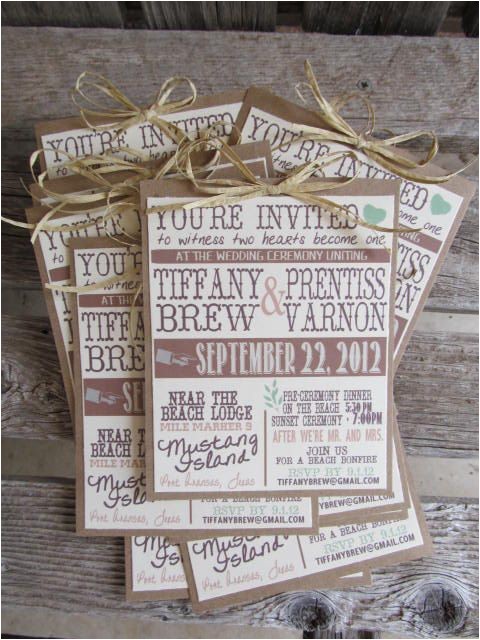 YOU'RE INVITED
to witness two hearts become one
AT THE WEDDING CEREMONY UNITING
TIFFANY BREW
&
PRENTISS VARNON
SEPTEMBER 22, 2012
NEAR THE
BEACH LODGE
MILE MARKER 9
Mustang
Island
Port Aransas, Texas
PRE-CEREMONY DINNER
ON THE BEACH 5:30 PM
SUNSET CEREMONY - 7:00PM
AFTER WE'RE MR. AND MRS.
JOIN US
FOR A BEACH BONFIRE
RSVP BY 9.1.12
TIFFANYBREW@GMAIL.COM
YOU'RE INVITED
to witness two hearts
YOU'RE INVITED
become one
YOU'RE
to witness
AT THE
TIFFA
BREW
NEAR
BEACH
MILE MAR
Mustang
Island
Port Aransas, Texas
FOR A BEACH BONFIRE
RSVP BY 9.1.12
TIFFANYBREW@GMAIL.COM
Island
Port Aransas, Texas
FOR A BEACH BONFIRE
RSVP BY 9.1.12
TIFFANYBREW@GMAIL.COM